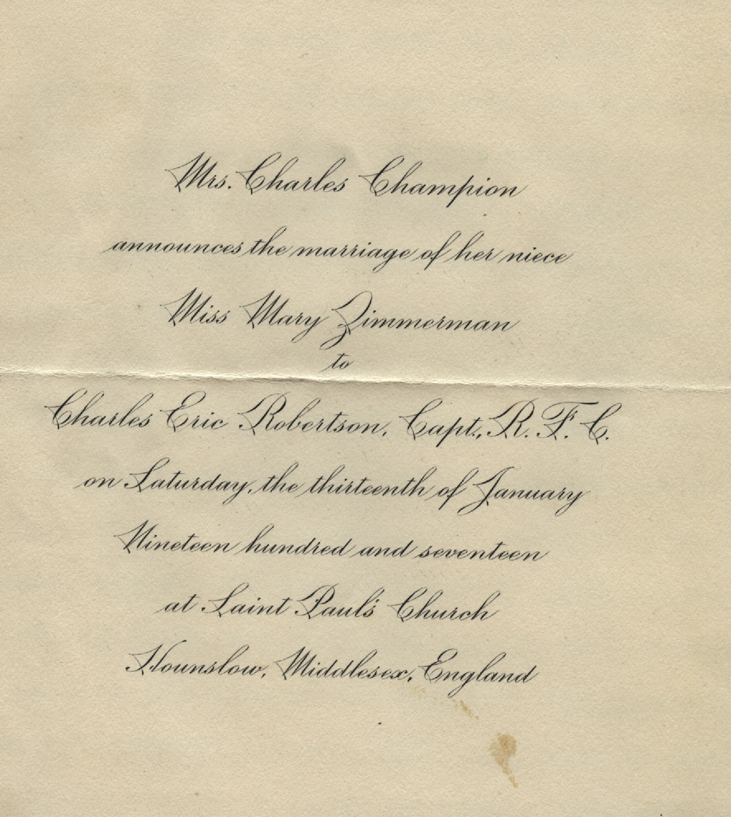 Mrs. Charles Champion
announces the marriage of her niece
Miss Mary Zimmerman
to
Charles Eric Robertson, Capt., R. F. C.
on Saturday, the thirteenth of January
Nineteen hundred and seventeen
at Saint Paul's Church
Hounslow, Middlesex, England